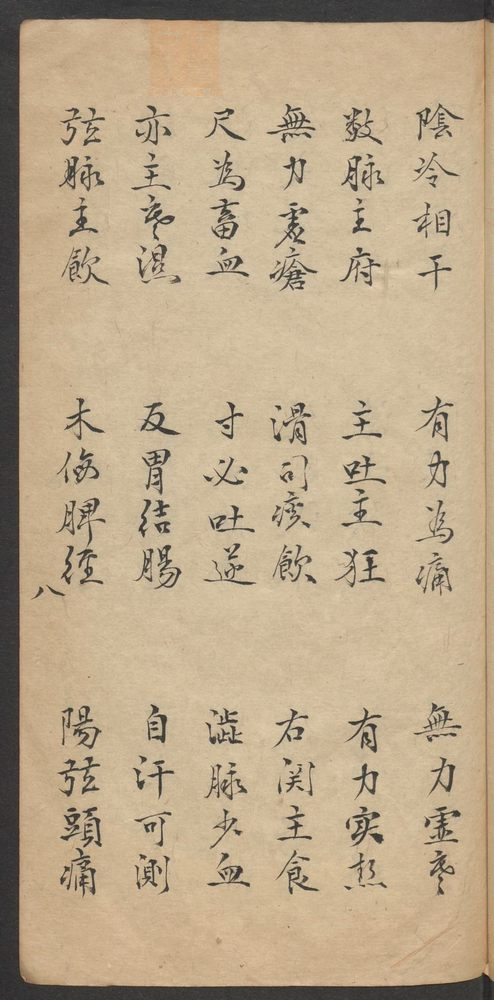 陰冷相干　有力為痛　無力虛寒
数脉主府　主吐主狂　有力実熱
無力虛瘡　滑司痰飲　右関主食
尺為畜血　寸必吐逆　澁脉少血
亦主寒濕　反胃结腸　自汗可測
弦脉主飲　木侮脾經　陽弦頭痛
八